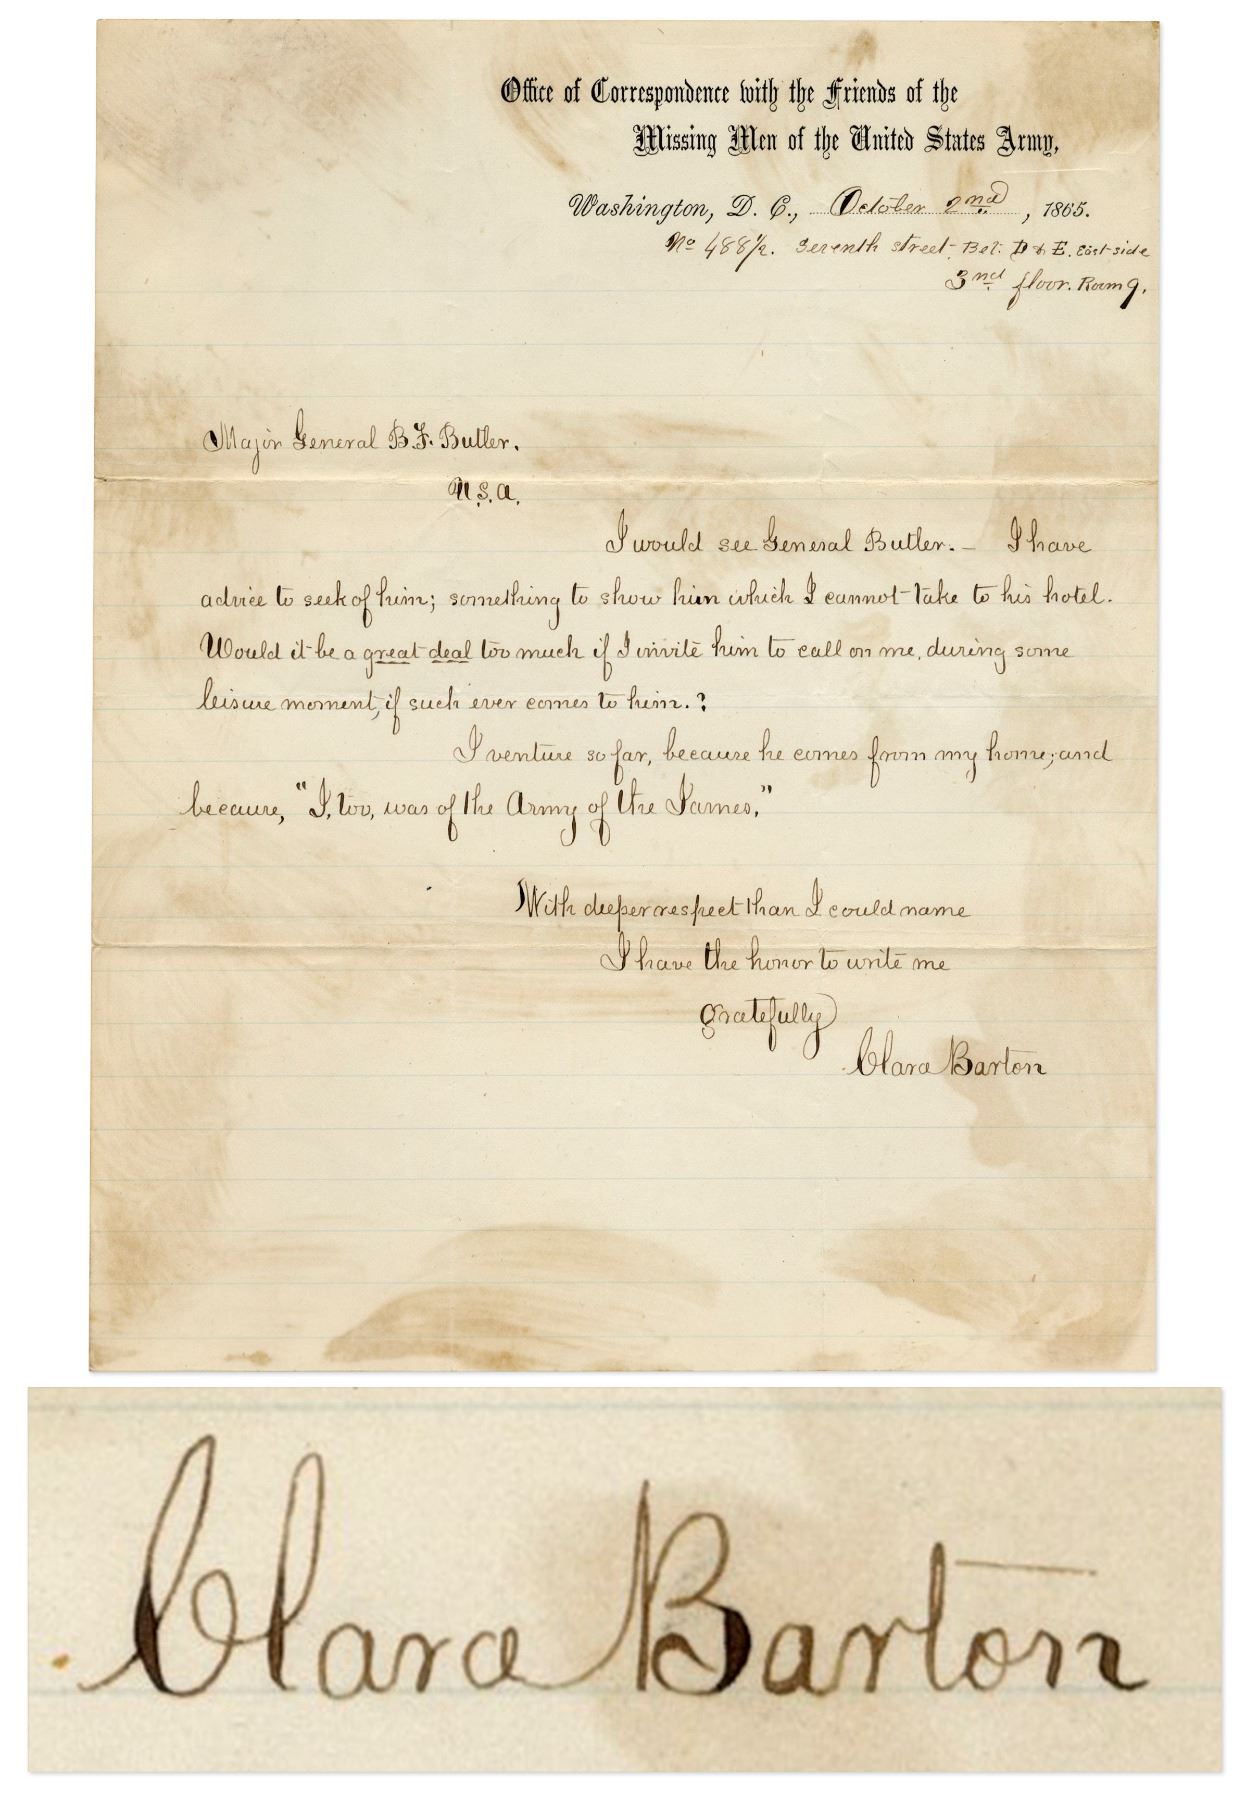 Office of Correspondence with the Friends of the
Missing Men of the United States Army,
Washington, D. C., October 2nd, 1865.
No 488 1/2. Seventh street- Bet: D & E. East-side
3nd floor. Room 9.
Major General B.F. Butler.
U.S.A.
I would see General Butler. – I have
advice to seek of him; something to show him which I cannot take to his hotel.
Would it be a great deal too much if I invite him to call on me, during some
leisure moment, if such ever comes to him.?
I venture so far, because he comes from my home; and
because, "I, too, was of the Army of the James."
With deeper respect than I could name
I have the honor to write me
gratefully
Clara Barton
Clara Barton